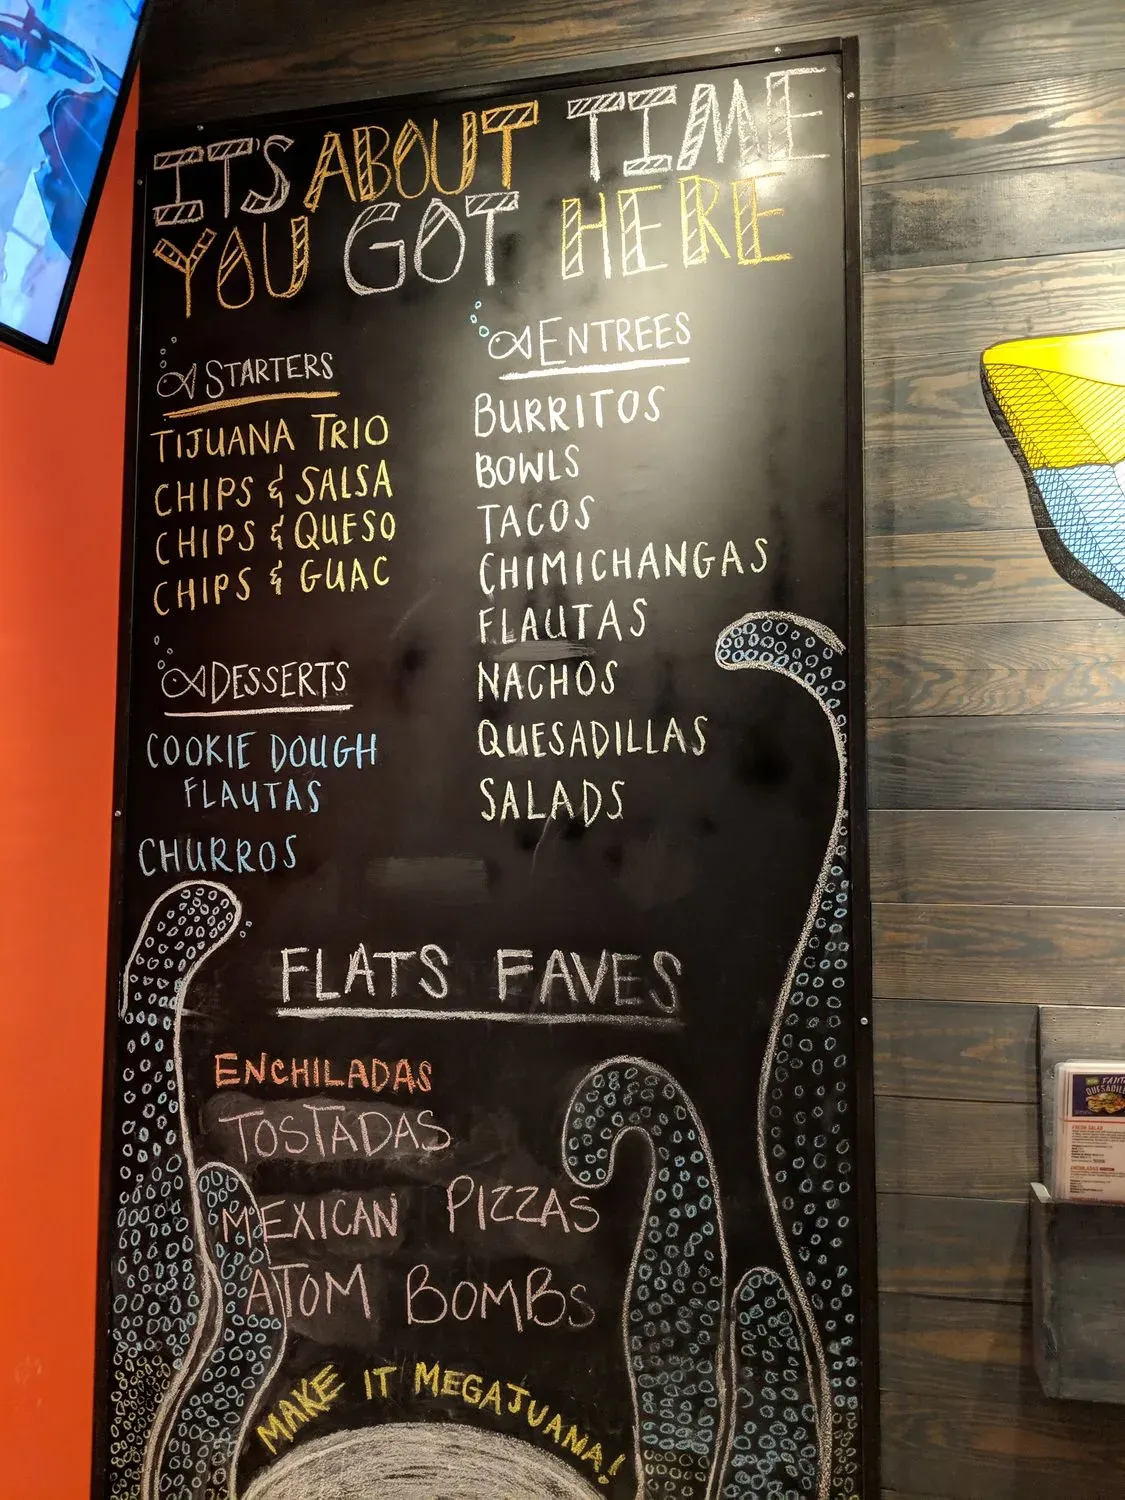 IT'S ABOUT TIME
YOU GOT HERE
STARTERS
TIJUANA TRIO
CHIPS & SALSA
CHIPS & QUESO
CHIPS & GUAC
DESSERTS
COOKIE DOUGH
FLAUTAS
CHURROS
ENTREES
BURRITOS
BOWLS
TACOS
CHIMICHANGAS
FLAUTAS
NACHOS
QUESADILLAS
SALADS
FLATS FAVES
ENCHILADAS
TOSTADAS
MEXICAN PIZZAS
ATOM BOMBS
MAKE IT MEGAJUANA!